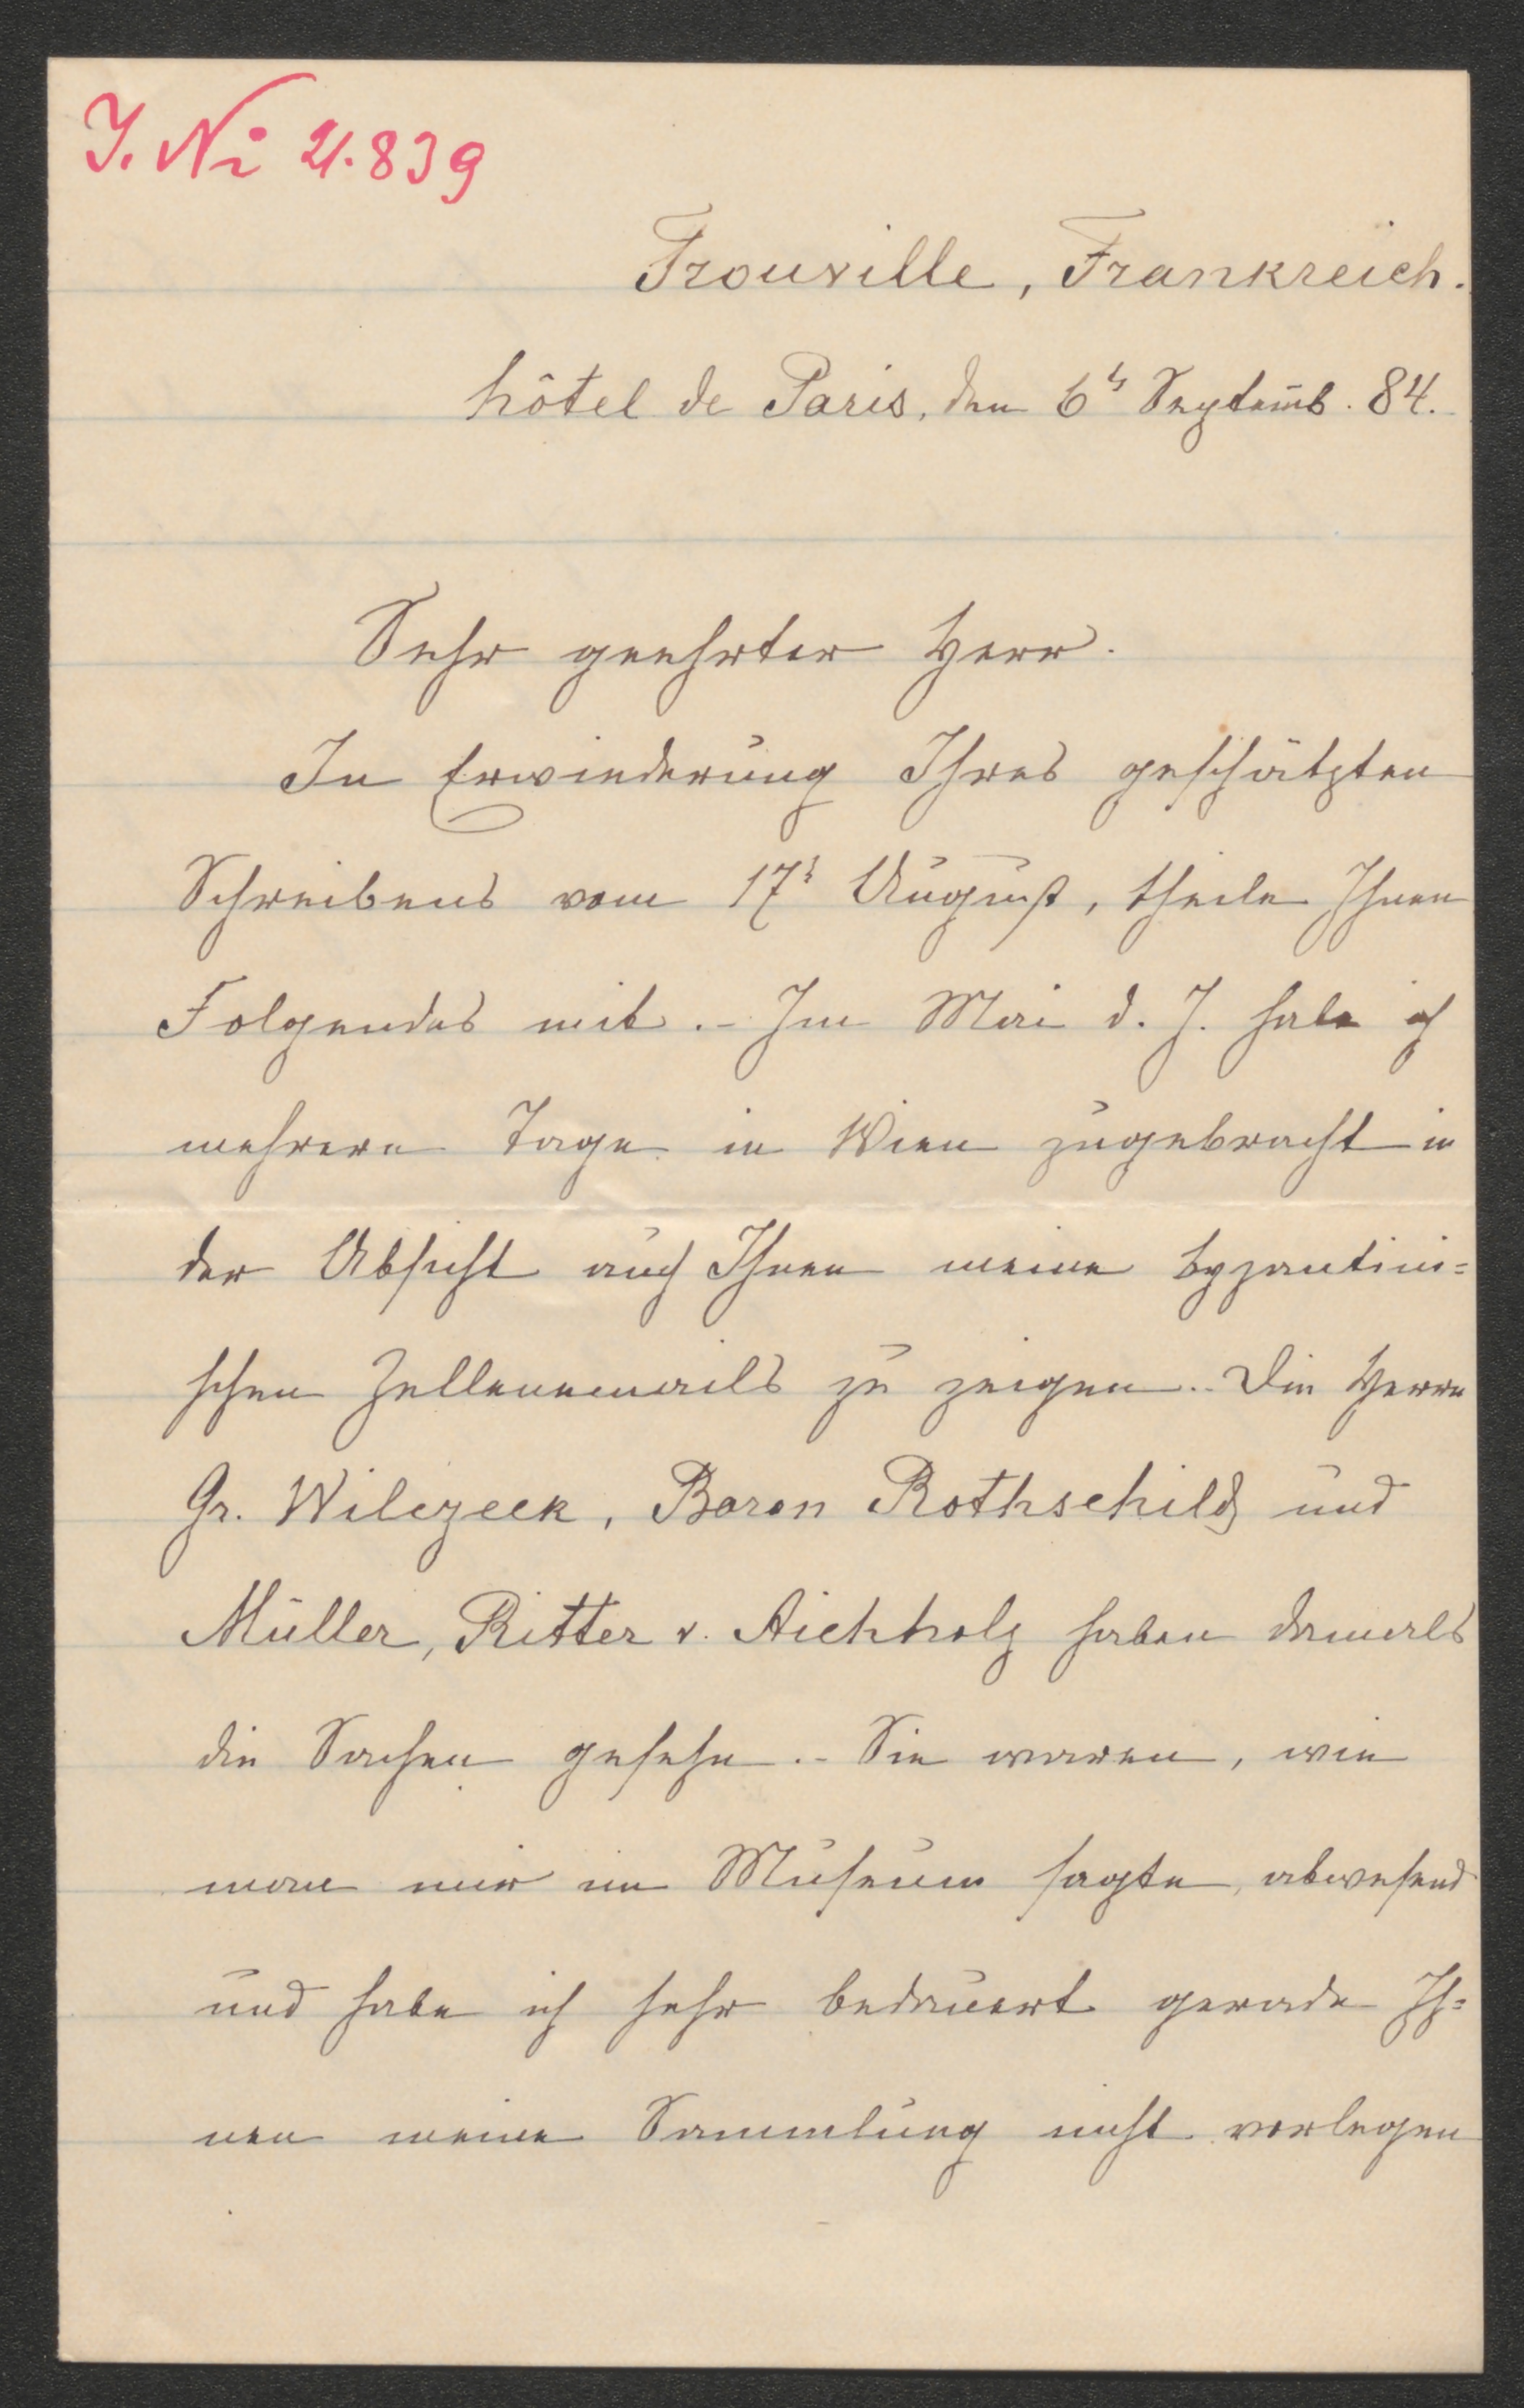 J. Nr 21.839
Trouville, Frankreich.
hôtel de Paris, den 6ts Septemb. 84.
Sehr geehrter Herr.
In Erwiederung Ihres geschätzten
Schreibens vom 17t August, theile Ihnen
Folgendes mit. - Im Mai d. J. habe ich
mehrere Tage in Wien zugebracht in
der Absicht auch Ihnen meine byzantini=
schen Zellenemails zu zeigen. - Die Herrn
Gr. Wilczeck, Baron Rothschild und
Müller, Ritter v. Aichholz haben damals
die Sachen gesehn. - Sie waren, wie
man mir im Museum sagte, abwesend
und habe ich sehr bedauert gerade Ih=
nen meine Sammlung nicht vorlegen